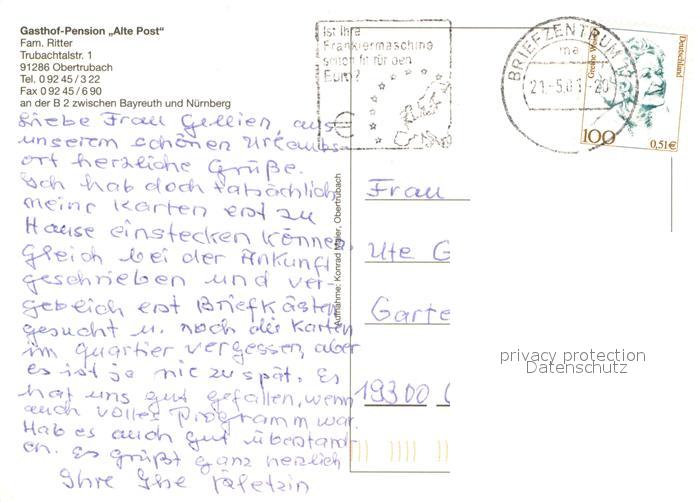 Gasthof-Pension „Alte Post“
Fam. Ritter
Trubachtalstr. 1
91286 Obertrubach
Tel. 0 92 45 / 3 22
Fax 0 92 45 / 6 90
an der B 2 zwischen Bayreuth und Nürnberg
Liebe Frau Gellien, aus
unserem schönen Urlaubs-
ort herzliche Grüße.
Ich hab doch tatsächlich
meine Karten erst zu
Hause einstecken können.
Gleich bei der Ankunft
geschrieben und ver-
geblich erst Briefkästen
gesucht u. noch die Karten
im Quartier vergessen, aber
es ist ja nie zu spät. Es
hat uns gut gefallen, wenn
auch volles Programm war.
Hab es auch gut überstand-
en. Es grüßt ganz herzlich
Ihre
Aufnahme: Konrad Maier, Obertrubach
Ist Ihre
Frankiermaschine
schon fit für den
Euro?
€
BRIEFZENTRUM
Grethe
Deutschland
100
0,51€
Frau
Ute G
Garte
19300
privacy protection
Datenschutz